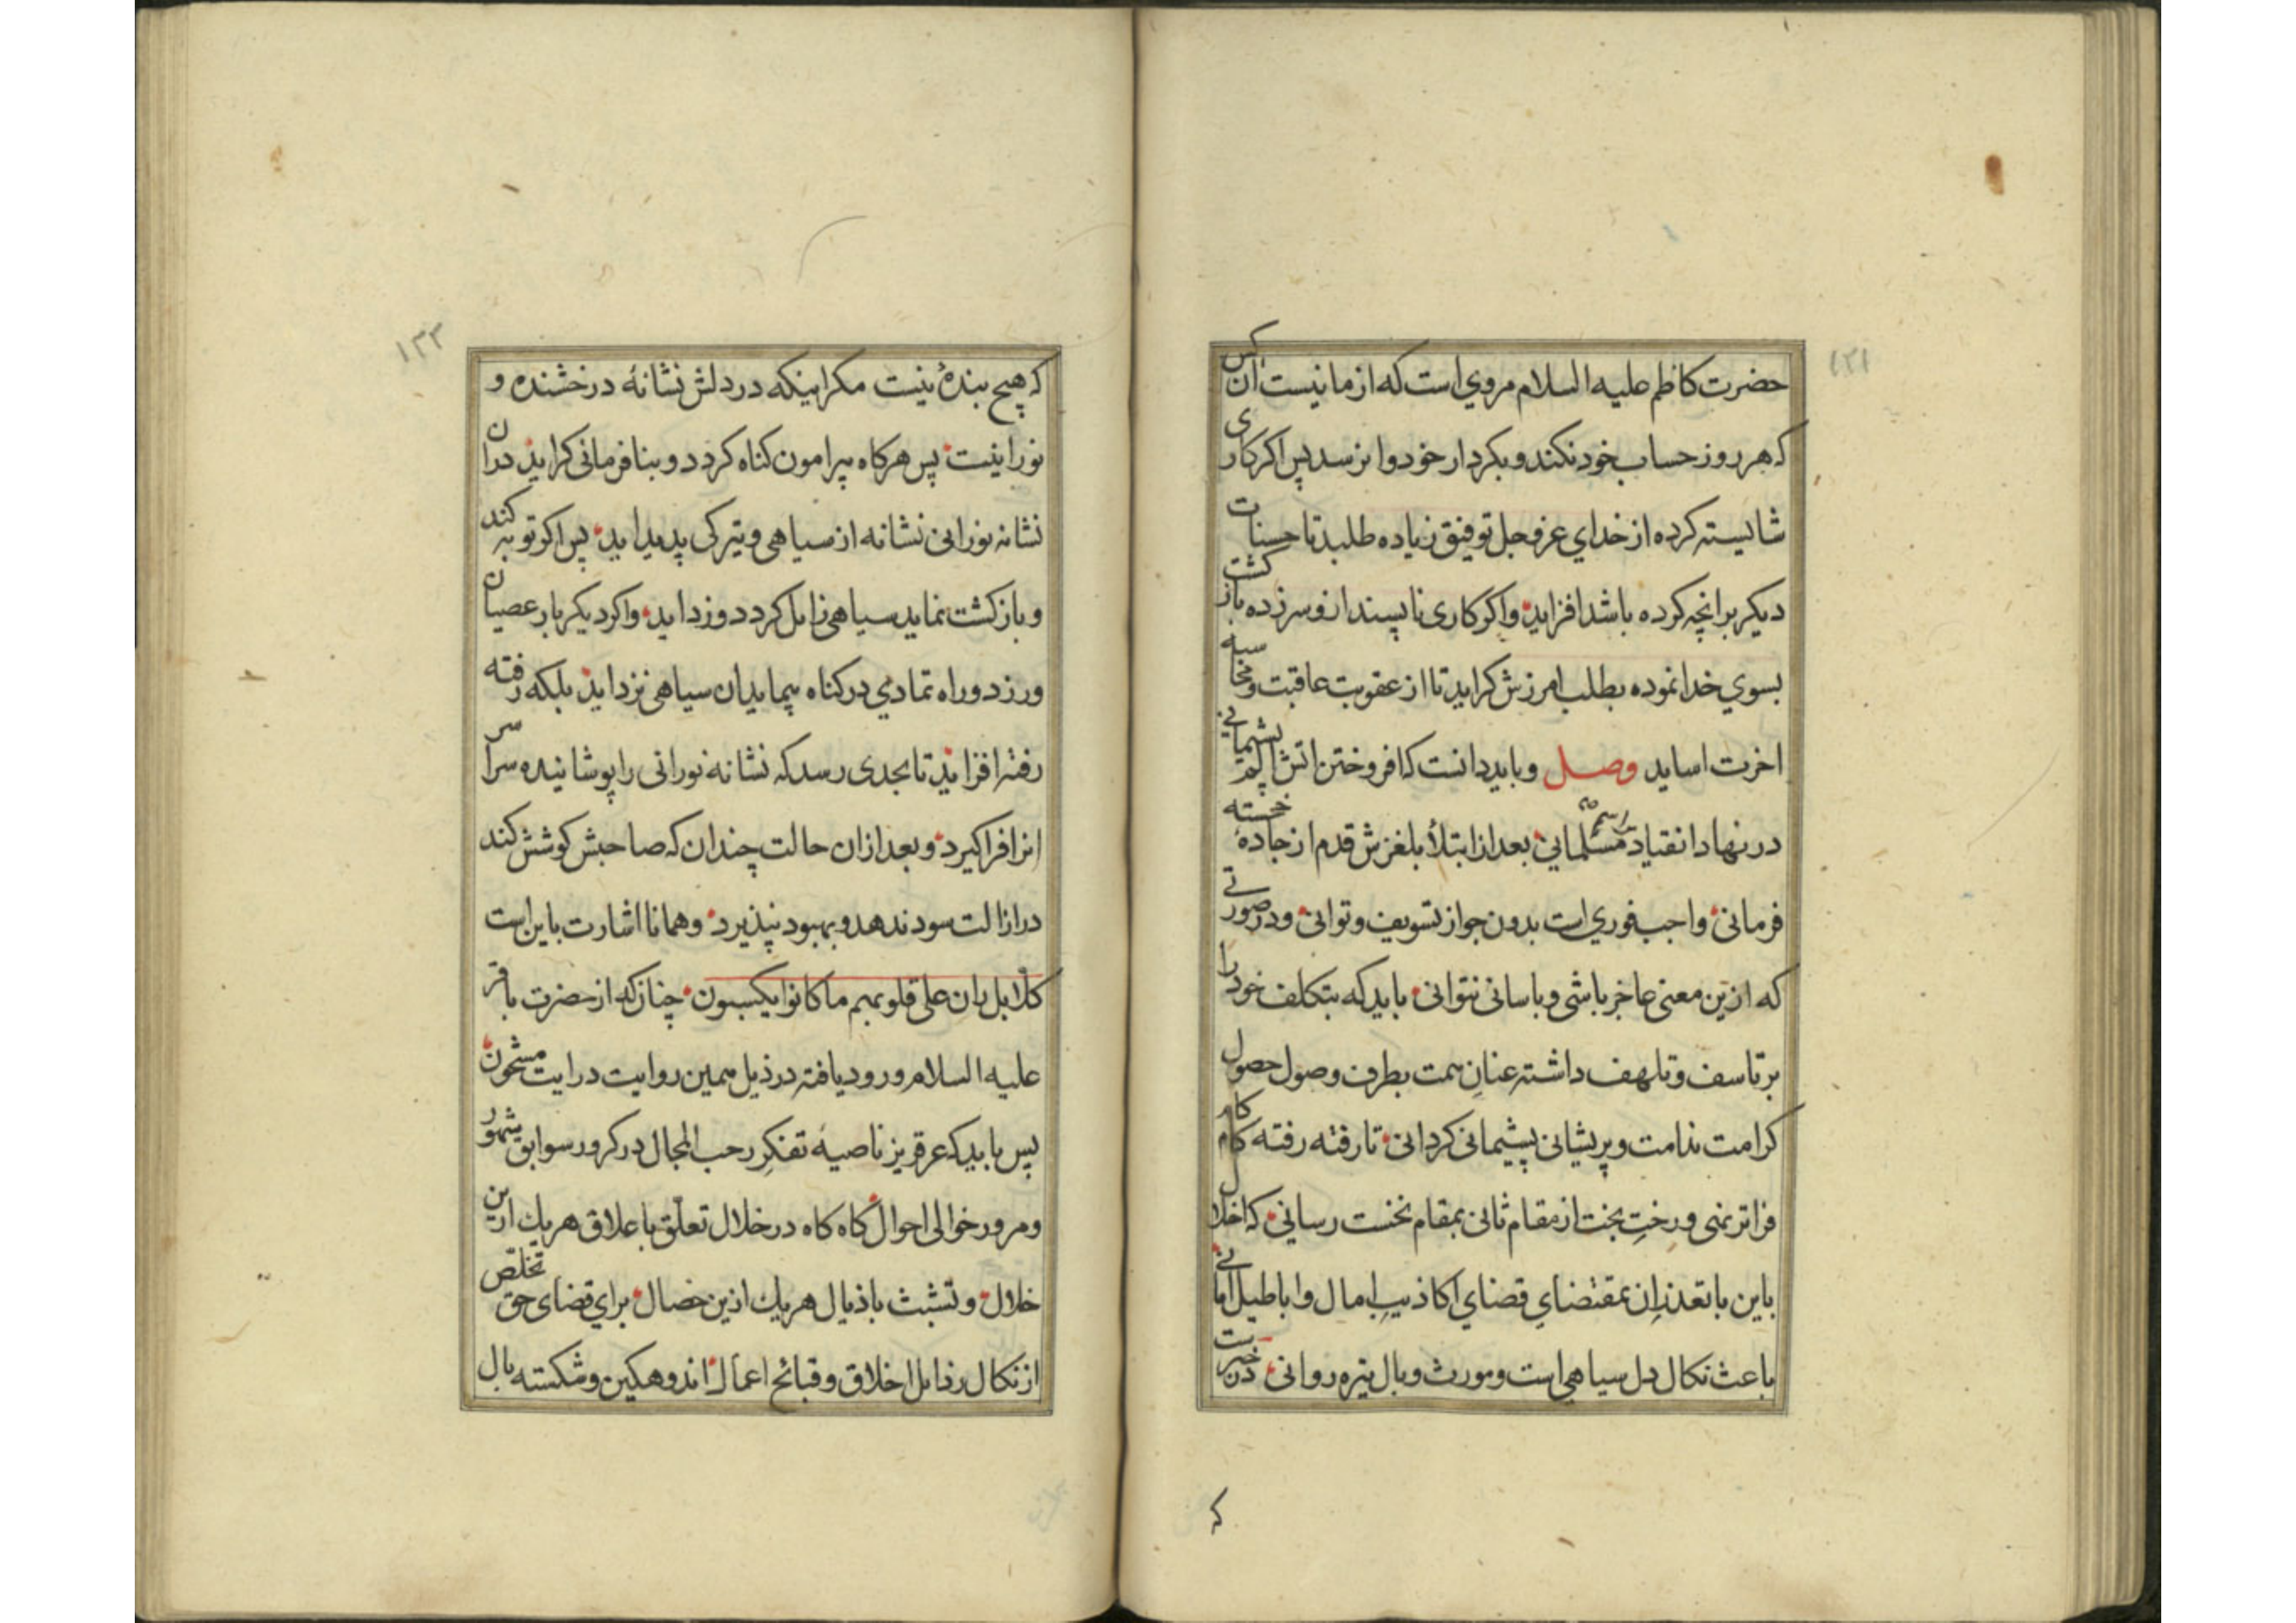 ۱۳۱
حضرت کاظم علیه السلام مروی است که از ما نیست آن کس
که هر روز حساب خود نکند و بکردار خود وا نرسد پس اکر کاری
شایسته کرده از خدای عز و جل توفیق زیاده طلبد تا حسنات
دیکر بر انچه کرده باشد افزاید و اکر کاری ناپسند از و سر زده باز کشت
بسوی خدا نموده بطلب امرزش کراید تا از عقوبت عاقبت و محاسبه
اخرت اساید وصل و باید دانست که افروختن اتش الم پشیمانی
در نهاد انقیاد رسم مسلمانی بعد از ابتلا بلغزش قدم از جادهٔ خجسته
فرمانی واجب فوری است بدون جواز تسویف و توانی و در صورتی
که ازین معنی عاجز باشی و باسانی نتوانی باید که بتکلف خود را
بر تاسف و تلهف داشته عنان همت بطرف وصول حصول
کرامت ندامت و پریشانی پشیمانی کردانی تا رفته رفته کام
فراتر نهی و رخت بخت از مقام ثانی بمقام نخست رسانی که اخلال
باین با تعذر ان بمقتضای قضای اکاذیب امال و اباطیل امانی
باعث نکال دل سیاهی است و مورث وبال تیره روانی در خبرست
که
۱۳۲
که هیچ بندهٔ نیست مکر اینکه در دلش نشانهٔ درخشنده و
نورانیت پس هر کاه پیرامون کناه کردد و بنافرمانی کراید در ان
نشانه نورانی نشانه از سیاهی و تیرکی پدید اید پس اکر توبه کند
و باز کشت نماید سیاهی زایل کردد و زداید و اکر دیکر بار عصیان
ورزد و راه تمادی در کناه پیماید ان سیاهی نزداید بلکه رفته
رفته افزاید تا بحدی رسد که نشانه نورانی را پوشانیده سراسر
انرا فرا کیرد و بعد از ان حالت چندان که صاحبش کوشش کند
در ازالت سود ندهد و بهبود نپذیرد و همانا اشارت باین است
کلا بل ران علی قلوبهم ما کانوا یکسبون چنانکه از حضرت باقر
علیه السلام ورود یافته در ذیل همین روایت درایت مشحون
پس باید که عرقریز ناصیهٔ تفکر رحب المجال در کرور سوابق شهور
و مرور خوالی احوال کاه کاه در خلال تعلق باعلاق هر یك ازین
خلال و تشبث باذیال هر یك ازین خصال برای قضای حق تخلص
از نکال رذایل اخلاق و قبائح اعمال اندوهکین و شکسته بال